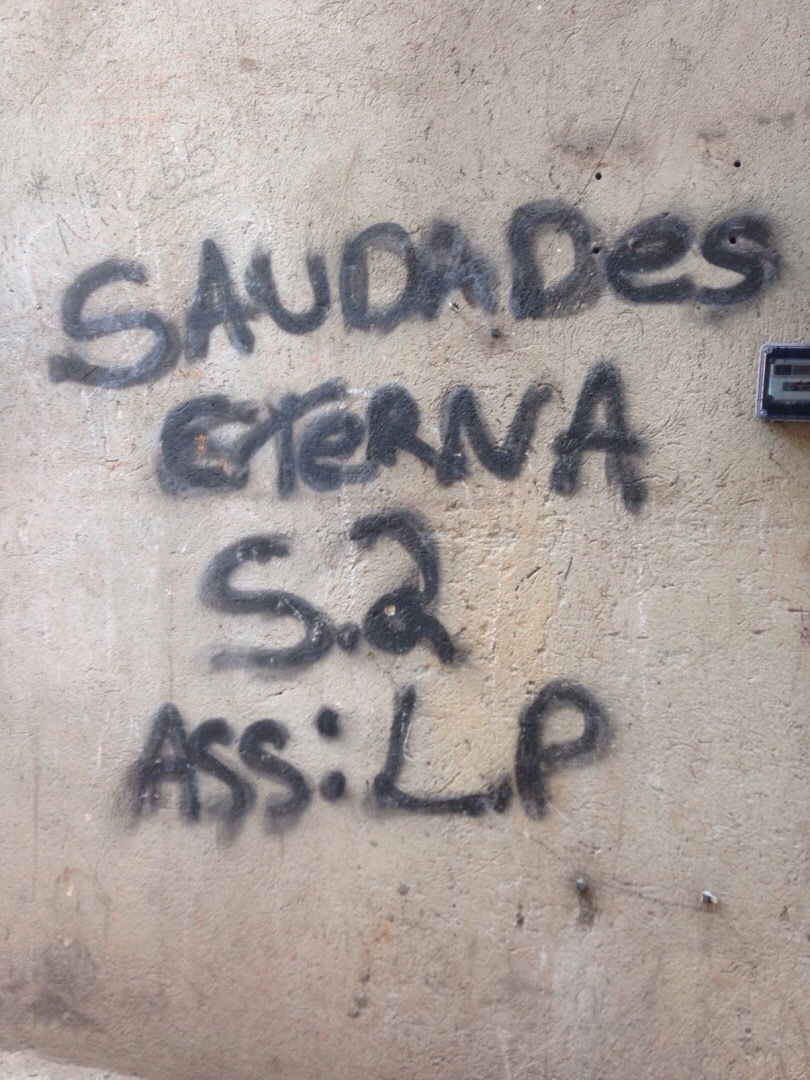 SAUDADes
eTeRNA
S.2
Ass: L.P